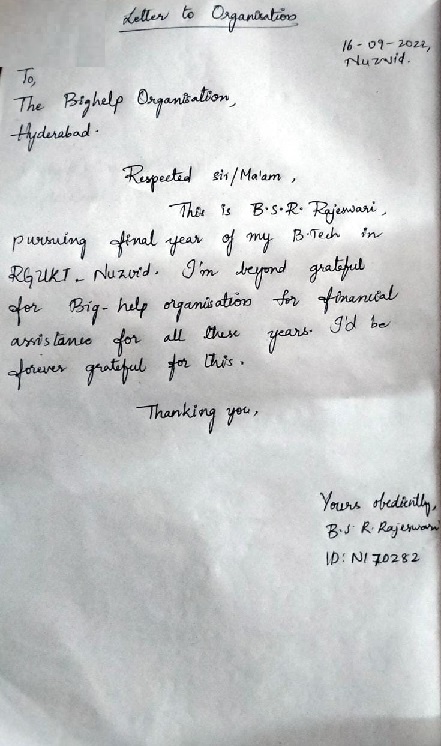 Letter to Organisation
16-09-2022,
Nuzvid.
To,
The Bighelp Organisation,
Hyderabad.
Respected sir/Ma'am,
This is B.S.R. Rajeswari,
pursuing final year of my B.Tech in
RGUKT - Nuzvid. I'm beyond grateful
for Big-help organisation for financial
assistance for all these years. I'd be
forever grateful for this.
Thanking you,
Yours obediently,
B.S.R. Rajeswari
ID: N170282